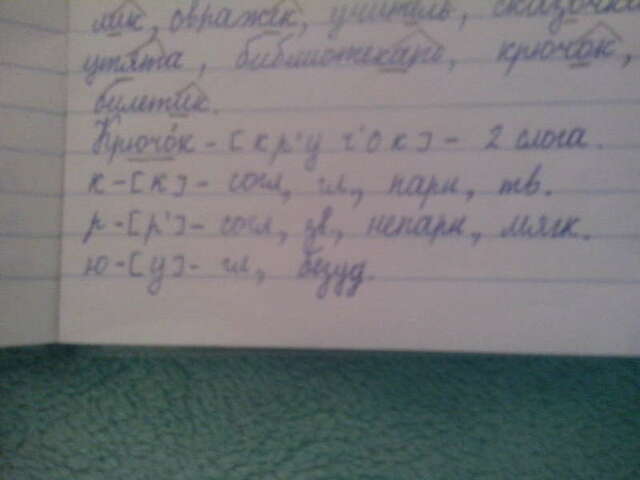 овражек, учитель, сказочка
утята, библиотекарь, крючок,
билетик.
Крючок - [кр'уч'ок] - 2 слога.
к - [к] - согл, гл, парн, тв.
р - [р'] - согл, зв, непарн, мягк.
ю - [у] - гл, безуд.